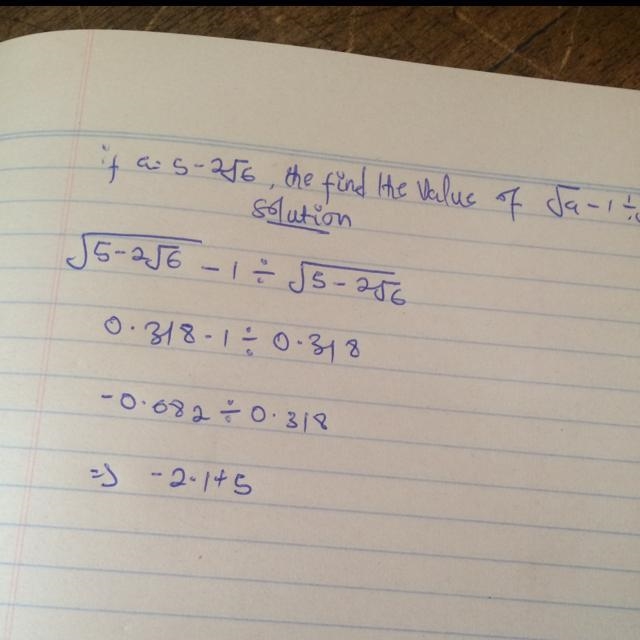 if a = 5 - 2√6, the find the value of √a - 1 ÷
Solution
√5 - 2√6 - 1 ÷ √5 - 2√6
0.318 - 1 ÷ 0.318
-0.682 ÷ 0.318
=> -2.145